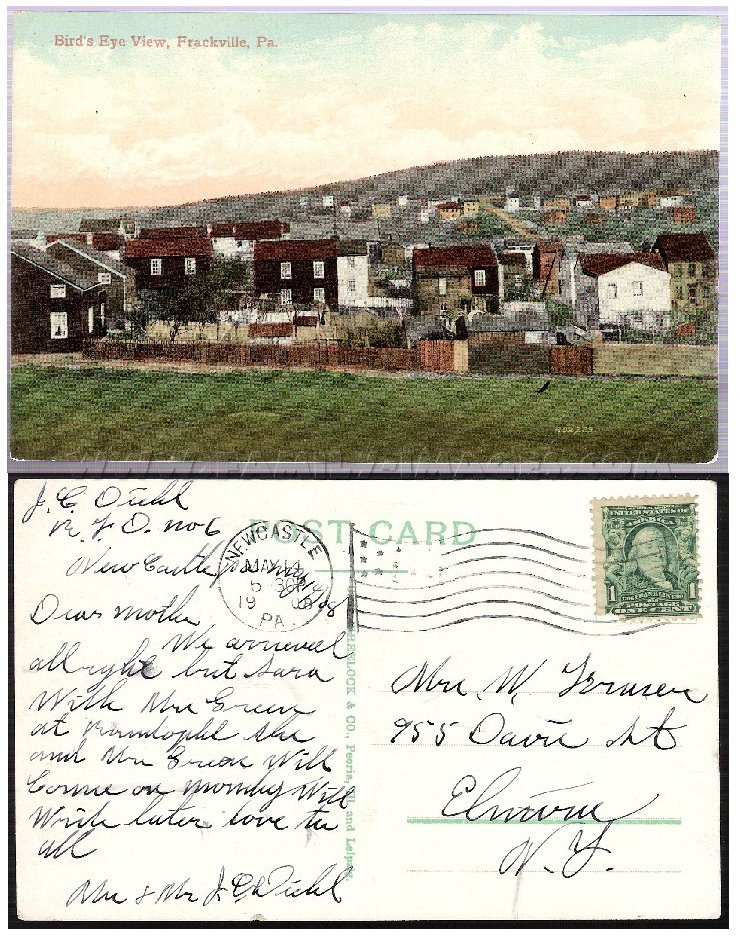 Bird's Eye View, Frackville, Pa.
J. C. Diehl
R. F. D. No 6
New Castle
POST CARD
NEWCASTLE
MAY 14
5 30
19 08
PA
UNITED STATES OF
AMERICA
1 1
POSTAGE
ONE CENT
Dear Mother
We arrived
all right left Sara
With Mrs Green
at Randolph she
and Mrs Green Will
Come on Monday Will
Write later love to
all
Mr & Mr J. C. Diehl
WHEELOCK & CO., Peoria, Ill. and Leipzig
Mrs. W.
955 Davis St
Elmira
N. Y.